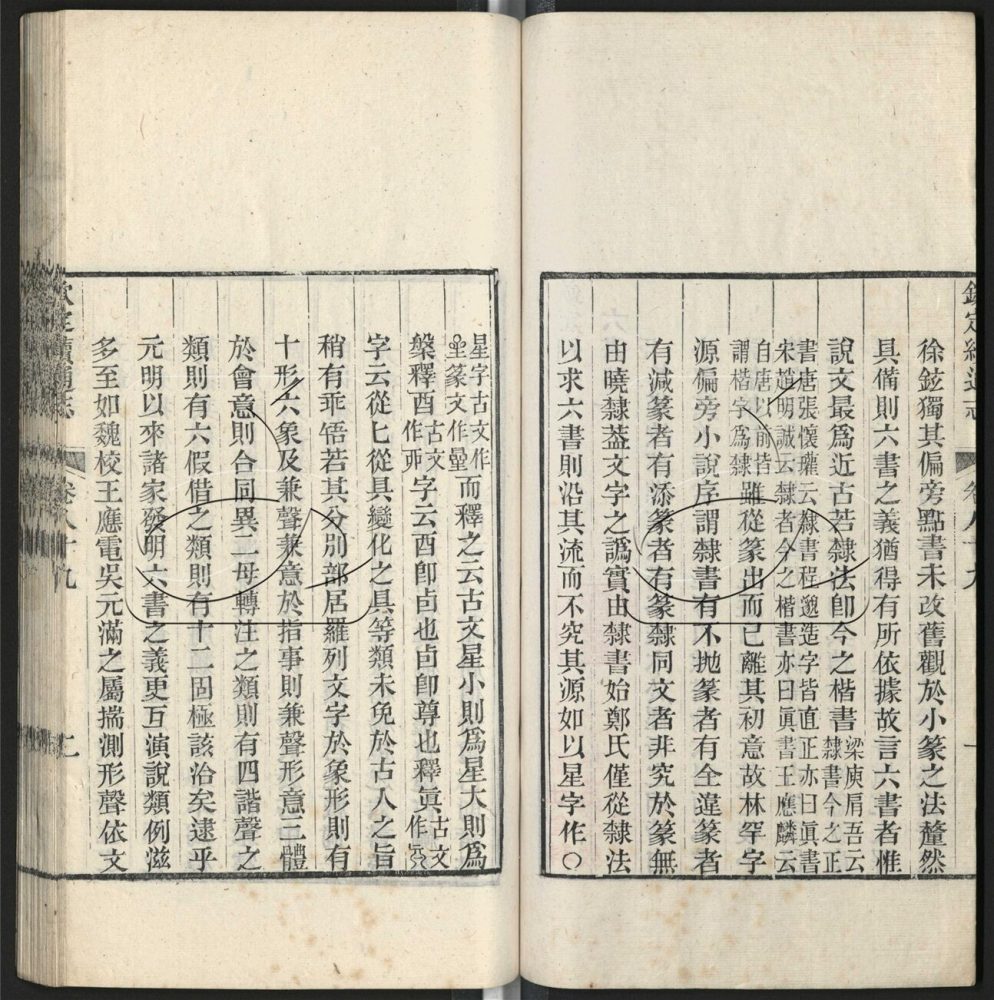 欽定續通志 卷八十九
徐鉉獨其偏旁點書未改舊觀於小篆之法釐然
具備則六書之義猶得有所依據故言六書者惟
說文最爲近古若隸法卽今之楷書梁庾肩吾云隸書今之正
書唐張懷瓘云隸書程邈造字皆直正亦曰眞書
宋趙明誠云隸者今之楷書亦曰眞書王應麟云
自唐以前皆謂楷字爲隸雖從篆出而已離其初意故林罕字
源偏旁小說序謂隸書有不抛篆者有全違篆者
有減篆者有添篆者有篆隸同文者非究於篆無
由曉隸葢文字之譌實由隸書始鄭氏僅從隸法
以求六書則沿其流而不究其源如以星字作〇
星字古文作𠻖篆文作曐而釋之云古文星小則爲星大則爲
槃釋酉古文作丣字云酉卽卣也卣卽尊也釋眞古文作𠤛
字云從匕從具變化之具等類未免於古人之旨
稍有乖啎若其分別部居羅列文字於象形則有
十形六象及兼聲兼意於指事則兼聲形意三體
於會意則合同異二母轉注之類則有四諧聲之
類則有六假借之類則有十二固極該洽矣逮乎
元明以來諸家發明六書之義更互演說類例滋
多至如魏校王應電吳元滿之屬揣測形聲依文
欽定續通志 卷八十九